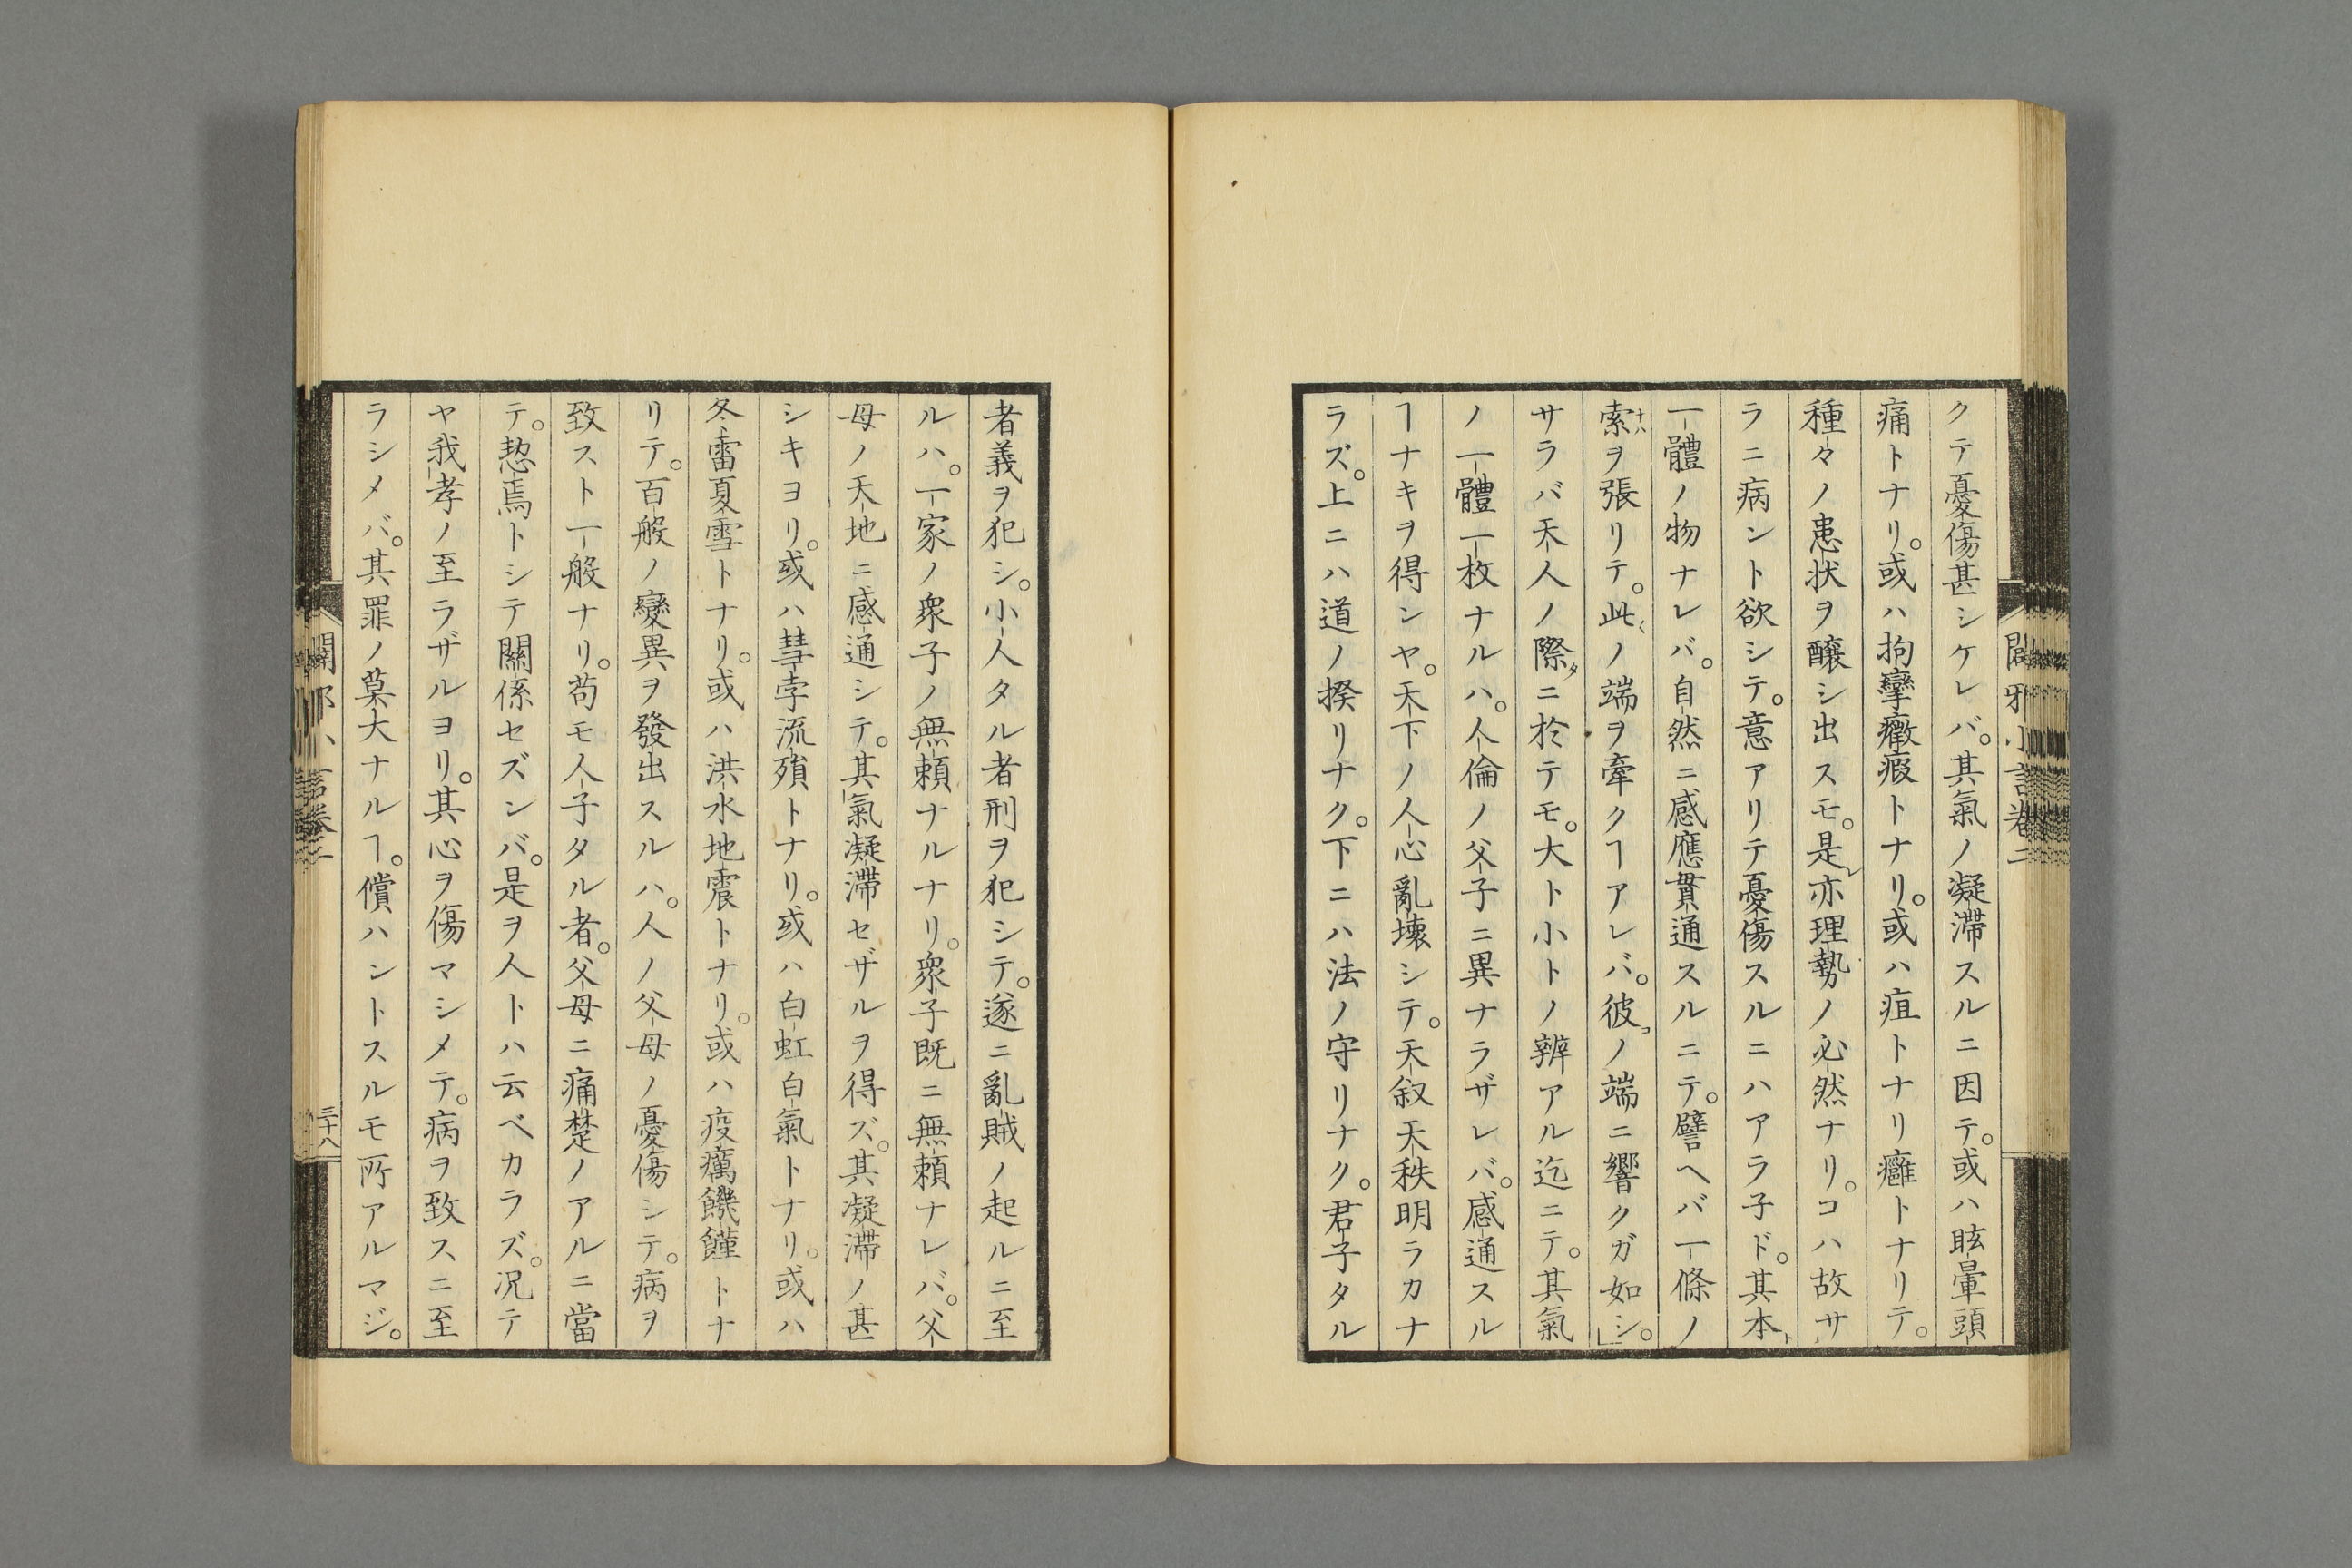 クテ憂傷甚シケレバ。其氣ノ凝滯スルニ因テ。或ハ眩暈頭
痛トナリ。或ハ拘攣癥瘕トナリ。或ハ疽トナリ癰トナリテ。
種々ノ患状ヲ釀シ出スモ。是レ亦理勢ノ必然ナリ。コハ故サ
ラニ病ント欲シテ。意アリテ憂傷スルニハアラ子ド。其本ト
一體ノ物ナレバ。自然ニ感應貫通スルニテ。譬ヘバ一條ノ
索ナハヲ張リテ。此クノ端ヲ牽クヿアレバ。彼コノ端ニ響クガ如シ。」
サラバ天人ノ際タニ於テモ。大ト小トノ辨アル迄ニテ。其氣
ノ一體一枚ナルハ。人倫ノ父子ニ異ナラザレバ。感通スル
ヿナキヲ得ンヤ。天下ノ人心亂壞シテ。天叙天秩明ラカナ
ラズ。上ニハ道ノ揆リナク。下ニハ法ノ守リナク。君子タル
者義ヲ犯シ。小人タル者刑ヲ犯シテ。遂ニ亂賊ノ起ルニ至
ルハ。一家ノ衆子ノ無頼ナルナリ。衆子既ニ無頼ナレバ。父
母ノ天地ニ感通シテ。其氣凝滯セザルヲ得ズ。其凝滯ノ甚
シキヨリ。或ハ彗孛流隕トナリ。或ハ白虹白氣トナリ。或ハ
冬雷夏雪トナリ。或ハ洪水地震トナリ。或ハ疫癘饑饉トナ
リテ。百般ノ變異ヲ發出スルハ。人ノ父母ノ憂傷シテ。病ヲ
致スト一般ナリ。苟モ人子タル者。父母ニ痛楚ノアルニ當
テ。恝焉トシテ關係セズンバ。是ヲ人トハ云ベカラズ。况テ
ヤ我孝ノ至ラザルヨリ。其心ヲ傷マシメテ。病ヲ致スニ至
ラシメバ。其罪ノ莫大ナルヿ。償ハントスルモ所アルマジ。
三十八